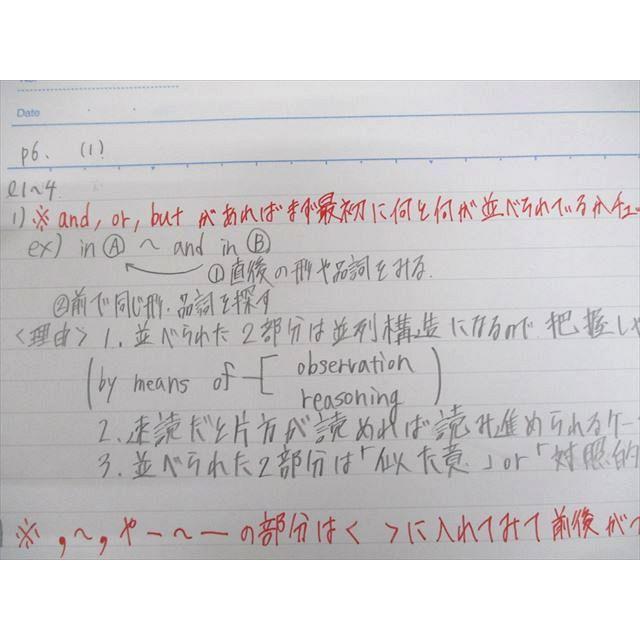 Date
p6. (1)
l1~4
1) ※ and, or, but があればまず最初に何と何が並べられているかチェ
ex) in Ⓐ ~ and in Ⓑ
①直後の形や品詞をみる.
②前で同じ形.品詞を探す
<理由> 1. 並べられた2部分は並列構造になるので 把握し
(by means of observation
reasoning)
2. 速読だと片方が読めれば読み進められるケー
3. 並べられた2部分は「似た意」or「対照的
※ , ~ , や ー ~ ー の部分は < > に入れてみて前後が